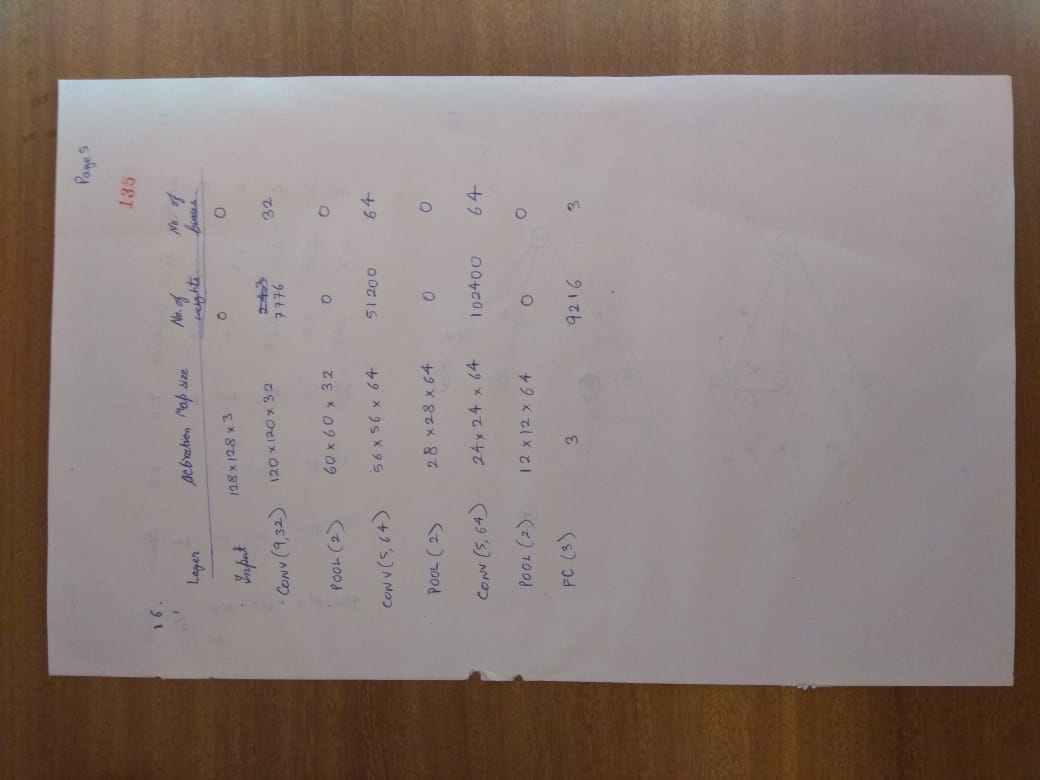 Page 5
135
16.
Layer Activation Map size No. of weights No. of biases
Input 128×128×3 0 0
CONV (9,32) 120×120×32 243 7776 32
POOL (2) 60×60×32 0 0
CONV (5,64) 56×56×64 51200 64
POOL (2) 28×28×64 0 0
CONV (5,64) 24×24×64 102400 64
POOL (2) 12×12×64 0 0
FC (3) 3 9216 3